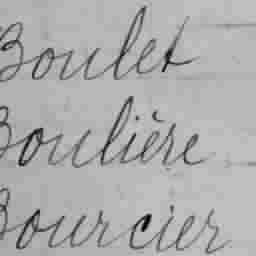 Boulet
Boulière
Bourcier